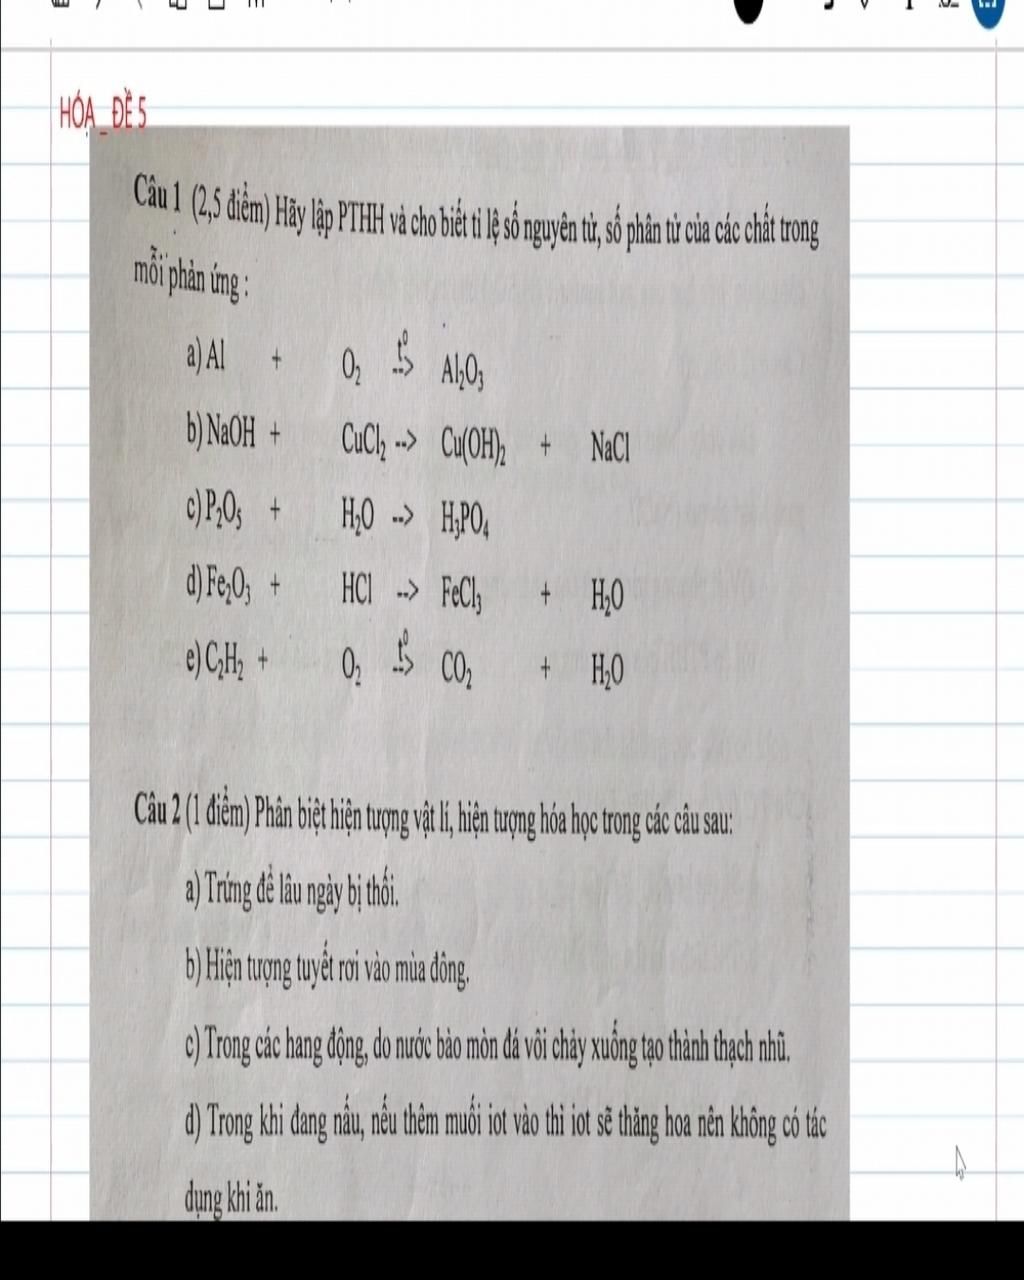 HÓA_ĐỀ 5
Câu 1 (2,5 điểm) Hãy lập PTHH và cho biết tỉ lệ số nguyên tử, số phân tử của các chất trong
mỗi phản ứng :
a) Al + O₂ -t⁰-> Al₂O₃
b) NaOH + CuCl₂ --> Cu(OH)₂ + NaCl
c) P₂O₅ + H₂O --> H₃PO₄
d) Fe₂O₃ + HCl --> FeCl₃ + H₂O
e) C₂H₂ + O₂ -t⁰-> CO₂ + H₂O
Câu 2 (1 điểm) Phân biệt hiện tượng vật lí, hiện tượng hóa học trong các câu sau:
a) Trứng để lâu ngày bị thối.
b) Hiện tượng tuyết rơi vào mùa đông.
c) Trong các hang động, do nước bào mòn đá vôi chảy xuống tạo thành thạch nhũ.
d) Trong khi đang nấu, nếu thêm muối iot vào thì iot sẽ thăng hoa nên không có tác
dụng khi ăn.